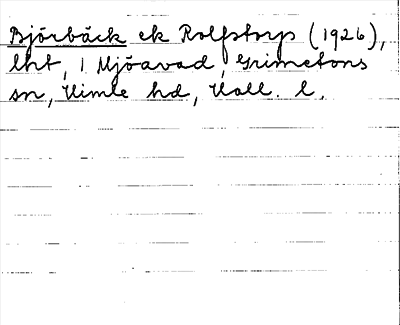 Björbäck ek Rolfstorp (1926),
lht, 1 Mjöavad, Grimetons
sn, Himle hd, Hall. l.